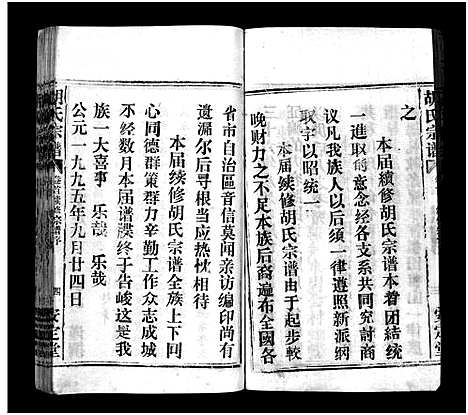 胡氏宗谱
之
本届续修胡氏宗谱本着团结统
一进取的意念经各支系共同究讨商
议凡我族人以后须一律遵照新派纲
取字以昭统一
本届续修胡氏宗谱由于起步较
晚财力之不足本族后裔遍布全國各
省市自治區音信莫闻亲访编印尚有
遗漏尔后寻根当应热忱相待
本届续修胡氏宗谱全族上下同
心同德群策群力辛勤工作众志成城
不经数月本届谱牒终于告峻这是本
族一大喜事 乐哉 乐哉
公元一九九五年九月廿四日
胡氏宗谱
四
安定堂